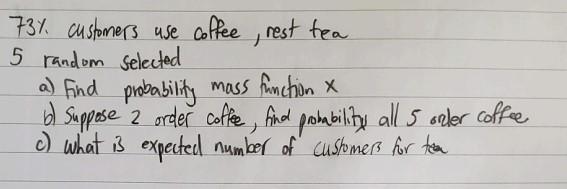 73% customers use coffee, rest tea
5 random selected
a) Find probability mass function x
b) Suppose 2 order coffee, find probability all 5 order coffee
c) what is expected number of customers for tea